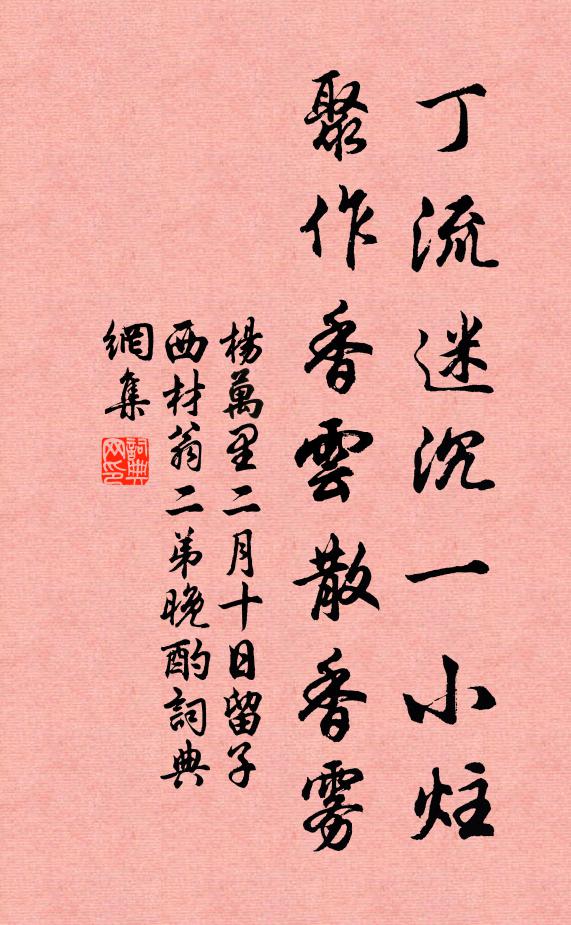 丁流迷沉一小炷
聚作香雲散香雾
楊萬里二月十日留子
西材翁二弟晚酌詞典
網集
詞典網印